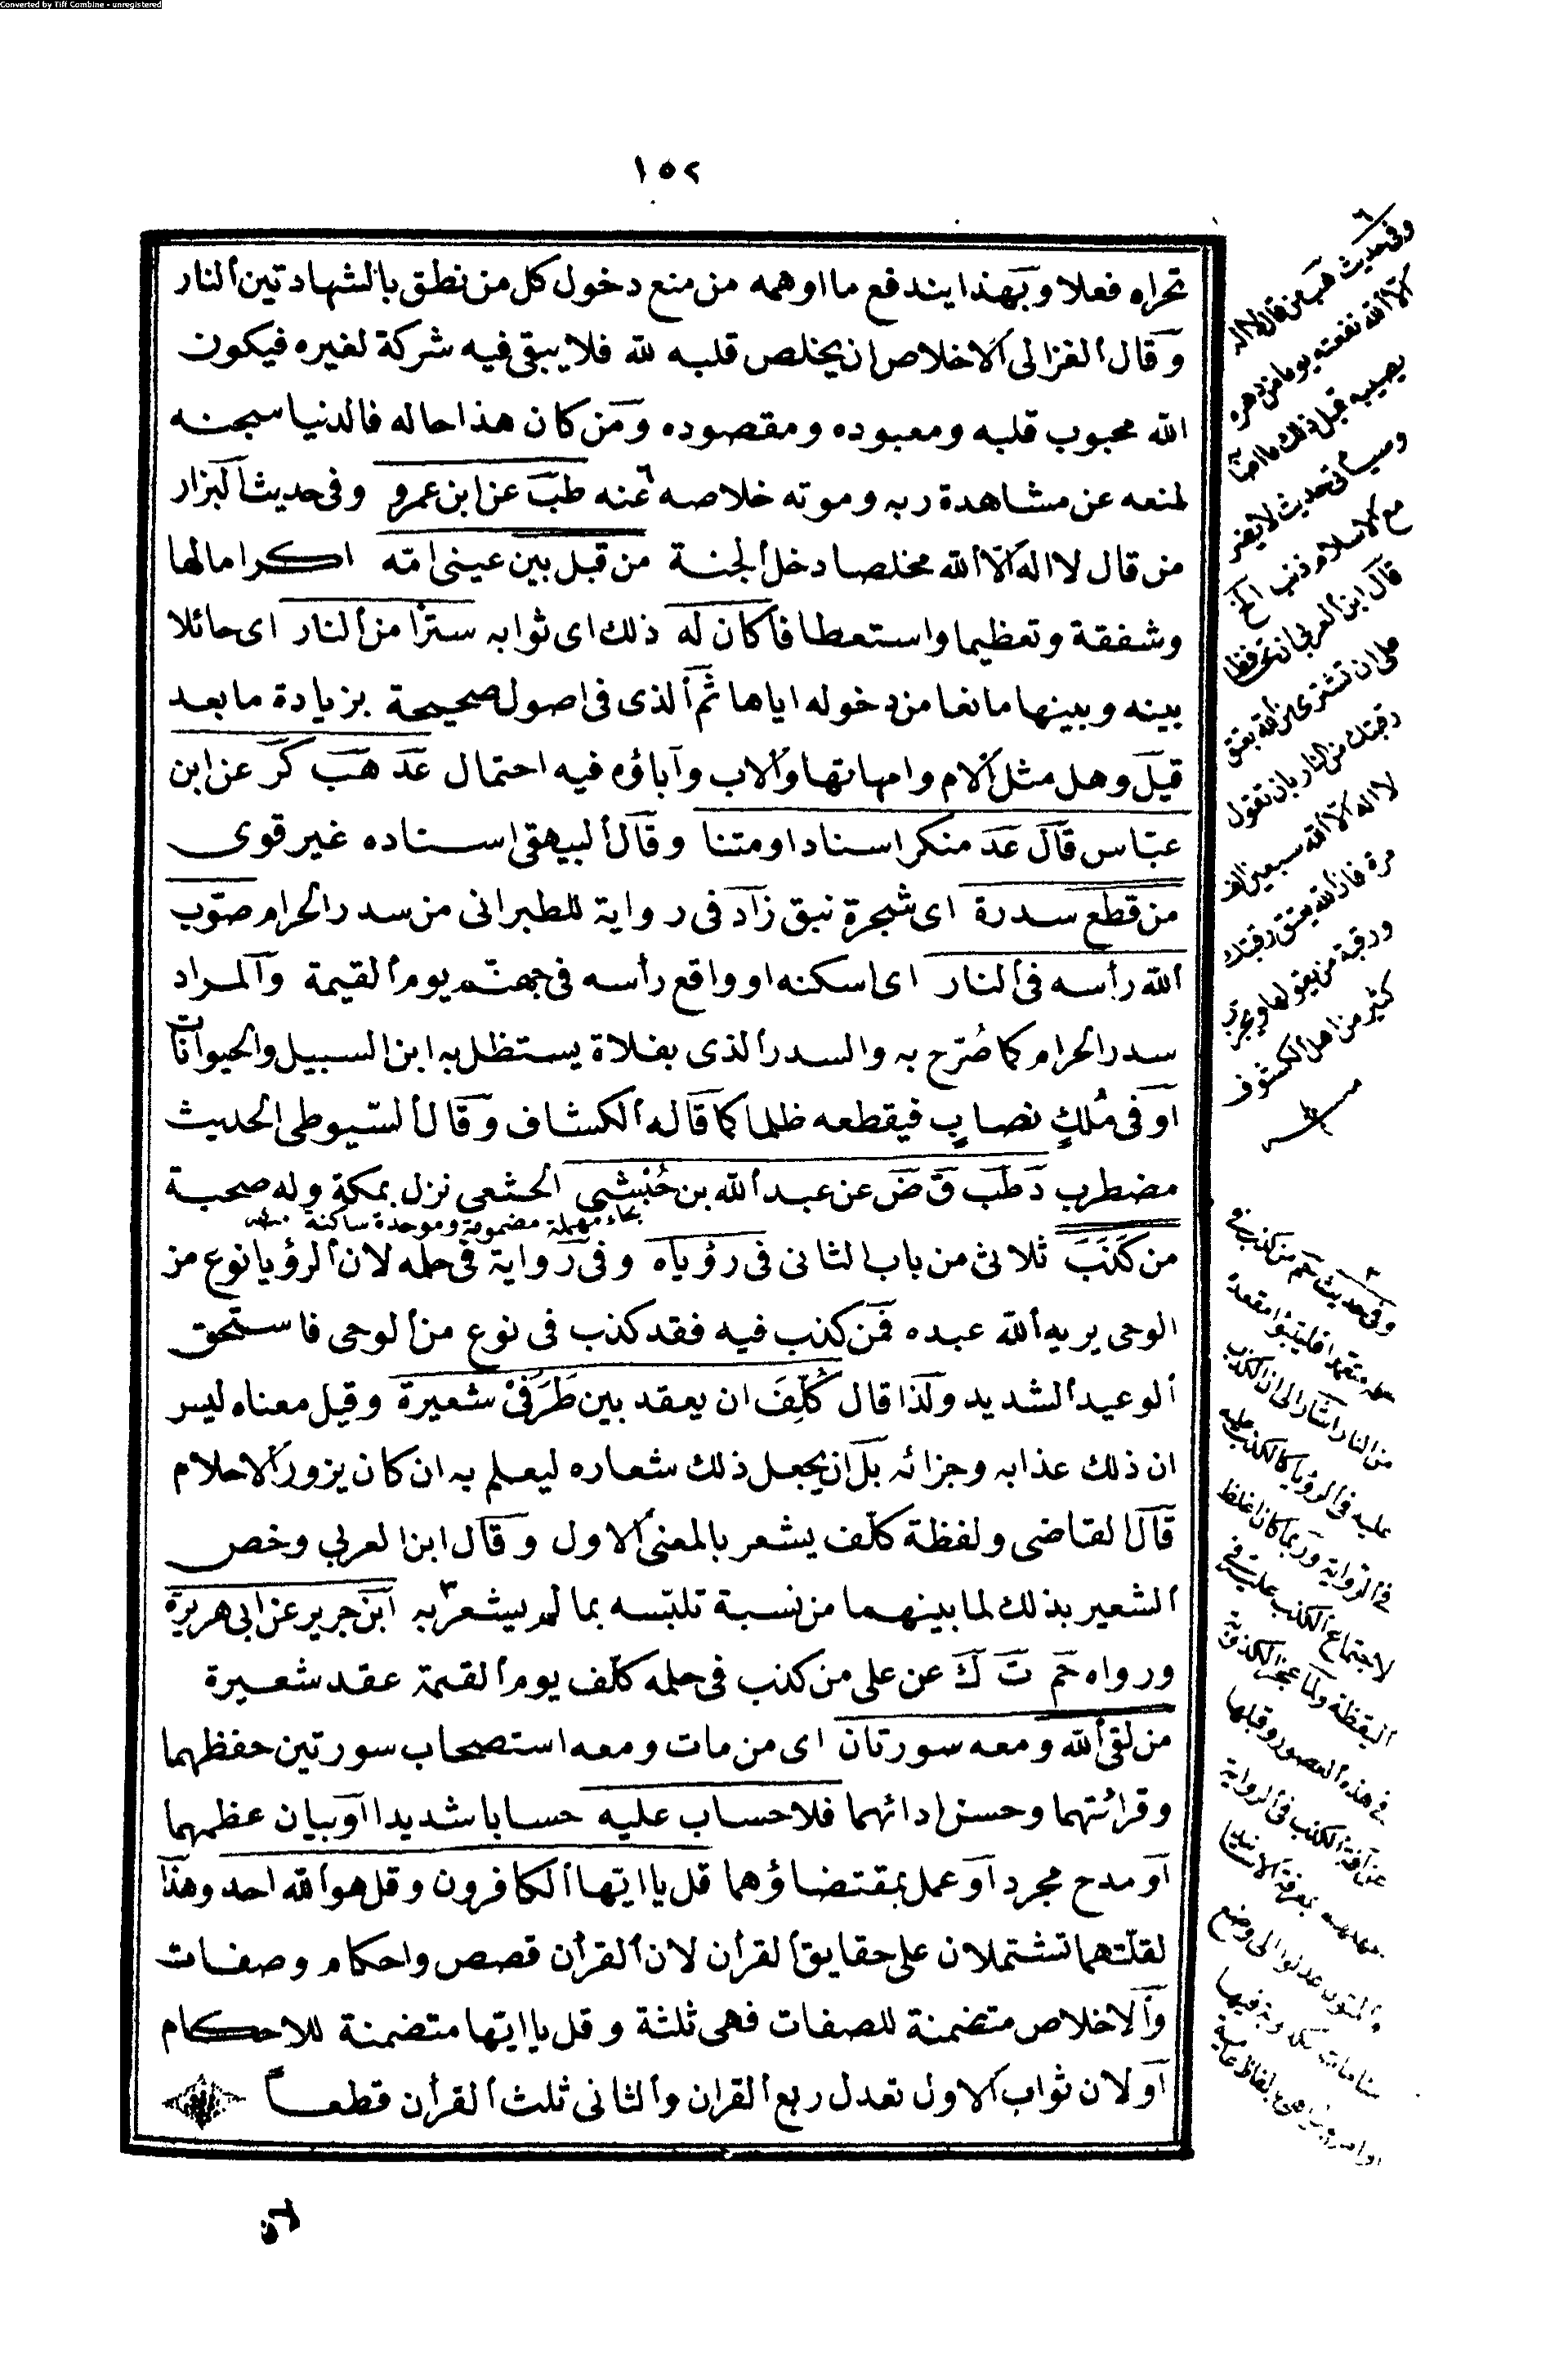 Converted by Tiff Combine - unregistered
١٥٢
تحراه فعلا وبهذا يندفع ما اوهمه من منع دخول كل من نطق بالشهادتين النار
وقال الغزالى الاخلاص ان يخلص قلبه لله فلا يبقى فيه شركة لغيره فيكون
الله محبوب قلبه ومعبوده ومقصوده ومن كان هذا حاله فالدنيا سجنه
لمنعه عن مشاهدة ربه وموته خلاصه ٦ عنه طب عن ابن عمرو وفى حديث البزار
من قال لا اله الا الله مخلصا دخل الجنة من قبل بين عينى امه اكراما لها
وشفقة وتعظيما واستعطافا كان له ذلك اى ثوابه سترا من النار اى حائلا
بينه وبينها مانعا من دخوله اياها ثم الذى فى اصول صحيحة بزيادة ما بعد
قيل وهل مثل الام وامهاتها والاب وآباؤه فيه احتمال عد هب كر عن ابن
عباس قال عد منكر اسنادا ومتنا وقال البيهقى اسناده غير قوى
من قطع سدرة اى شجرة نبق زاد فى رواية للطبرانى من سدر الحرام صوب
الله رأسه فى النار اى اسكنه او واقع رأسه فى جهنم يوم القيمة والمراد
سدر الحرام كما صرح به والسدر الذى بفلاة يستظل به ابن السبيل والحيوانات
او فى ملك نصاب فيقطعه ظلما كما قاله الكشاف وقال السيوطى الحديث
مضطرب د طب ق ض عن عبد الله بن حُبْشِي الخثعمى نزل بمكة وله صحبة
بحاء مهملة مضمومة وموحدة ساكنة
من كَذَبَ ثلاثى من باب الثانى فى رؤياه وفى رواية فى حلمه لان الرؤيا نوع من
الوحى يريه الله عبده فمن كذب فيه فقد كذب فى نوع من الوحى فاستحق
الوعيد الشديد ولذا قال كُلِّفَ ان يعقد بين طَرَفَىْ شعيرة وقيل معناه ليس
ان ذلك عذابه وجزائه بل ان يجعل ذلك شعاره ليعلم به ان كان يزور الاحلام
قال القاضى ولفظة كلّف يشعر بالمعنى الاول وقال ابن العربي وخص
الشعير بذلك لما بينهما من نسبة تلبسه بما لم يشعر ٣ به ابن جرير عن ابى هريرة
ورواه حم ت ك عن على من كذب فى حلمه كلّف يوم القيمة عقد شعيرة
من لقى الله ومعه سورتان اى من مات ومعه استصحاب سورتين حفظهما
وقرائتهما وحسن ادائهما فلا حساب عليه حسابا شديدا او بيان عظمهما
او مدح مجرد او عمل بمقتضاؤهما قل يا ايها الكافرون وقل هو الله احد وهذا
لقلتهما تشتملان على حقايق القرأن لان القرأن قصص واحكام وصفات
والاخلاص متضمنة للصفات فهى ثلثة وقل يا ايها متضمنة للاحكام
او لان ثواب الاول تعدل ربع القران والثانى ثلث القرأن قطعا
٦ وفى حديث هب من قال لا اله
الا الله نفعته يوما من دهره
يصيبه قبل ذلك ما اصابه
وسيأتى حديث لا يضر
مع الاسلام ذنب الخ
قال ابن العربى
على ان تشترى من الله بعتق
رقبتك من النار بان تقول
لا اله الا الله سبعين الف
مرة فان الله يعتق رقبتك
ورقبة من يقولها
كثير من اهل الكشوف
٣ وفى حديث حم من كذب فى
حلمه متعمدا فليتبوأ مقعده
من النار اشار الى ان الكذب
عليه فى الرؤيا كالكذب عليه
فى الرواية وربما كان اغلظ
لاجتماع الكذب عليه فى
اليقظة ولما عجز
فى هذه العصور وقبلها
عن الكذب فى الرواية
الاسانيد
والمتون عدلوا الى وضع
منامات